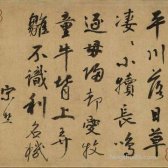 平川落日草
凄〻小犢長鳴
逐母歸却愛牧
童牛背上
不識利名機
宗